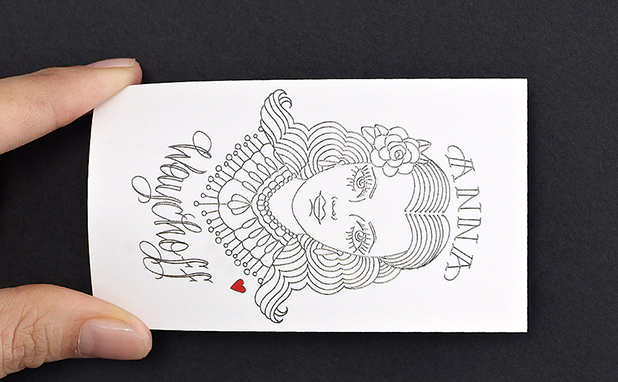 ANNA
Waychoff